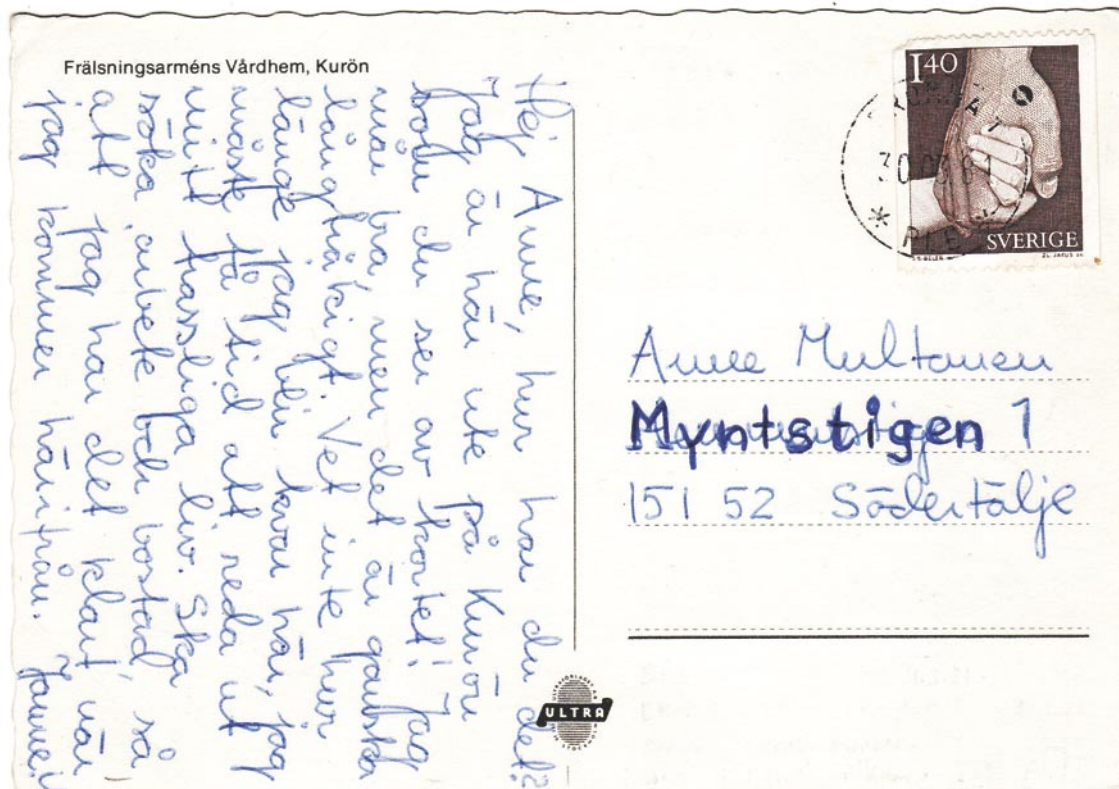 Frälsningsarméns Vårdhem, Kurön
Hej Anne, hur har du det?
Jag är här ute på Kurön
som du ser av kortet! Jag
mår bra, men det är ganska
långtråkigt. Vet inte hur
länge jag blir kvar här, jag
måste få tid att reda ut
mitt trassliga liv. Ska
söka arbete och bostad, så
att jag har det klart, när
jag kommer härifrån. Janne!
1 40
30.03.81
SVERIGE
Anne Multanen
Myntstigen 1
151 52 Södertälje
ULTRA